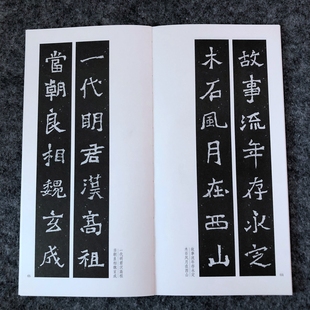 故事流年存永定
木石風月在西山
一代明君漢高祖
當朝良相魏玄成